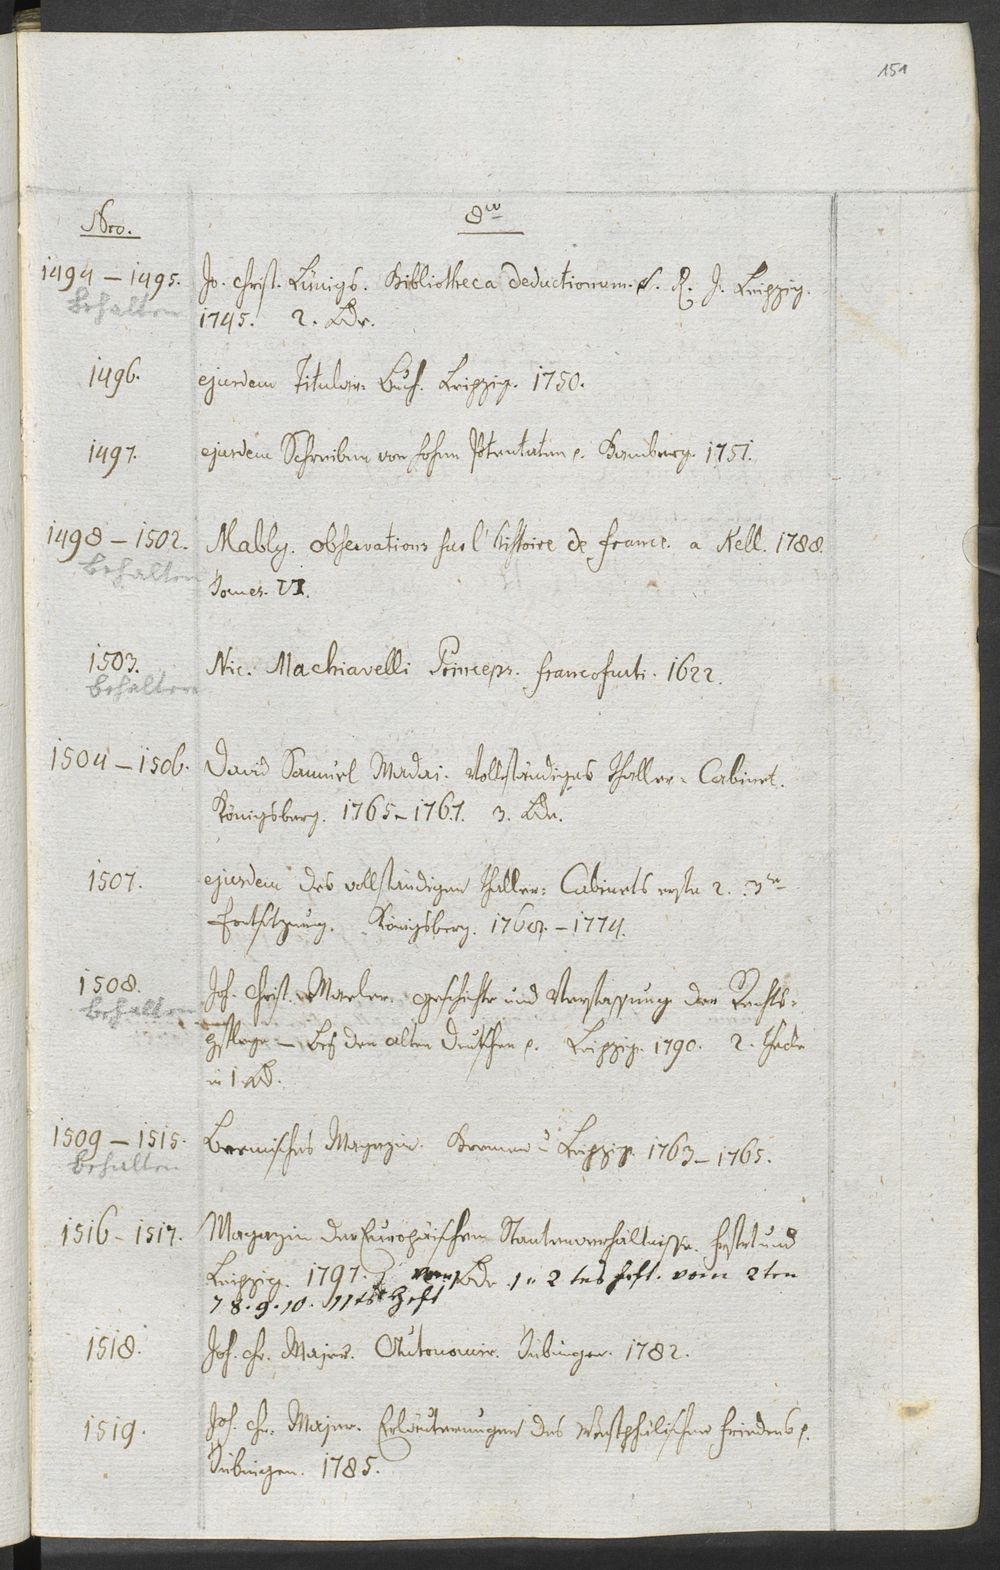 151
Nro. 8vo
1494 – 1495. Jo. Christ. Lünigs. Bibliotheca deductionum. S. R. J. Leipzig.
behalten 1745. 2. Bde.
1496. ejusdem Titular Buch. Leipzig. 1750.
1497. ejusdem Schreiben von hohen Potentaten p. Bamberg. 1751.
1498 – 1502. Mably. observations sur l'histoire de france. a Kell. 1788.
behalten Tomes. VI.
1503. Nic. Machiavelli Princeps. francofurti. 1622.
behalten
1504 – 1506. David Samuel Madai. Vollständiges Thaller-Cabinet.
Königsberg. 1765–1767. 3. Bde.
1507. ejusdem des vollständigen Thaller: Cabinets erste 2. 3te
Fortsetzung. Königsberg. 1768. – 1774.
1508. Joh. Christ. geschichte und Verfassung der Rechts-
behalten pflege – bey den alten Deutschen p. Leipzig. 1790. 2. Theile
in 1 Bd.
1509 – 1515. Bremisches Magazin. Bremen u Leipzig. 1763–1765.
behalten
1516 – 1517. Magazin der Europäischen Staatenverhältnisse. und
Leipzig. 1797. vom Bde 1 u 2tes heft. vom 2ten
7 8. 9. 10. 11tes Heft
1518. Joh. Chr. Majer. Autonomie. Tübingen. 1782.
1519. Joh. Chr. Majer. Erläuterungen des Westphälischen friedens p.
Tübingen. 1785.